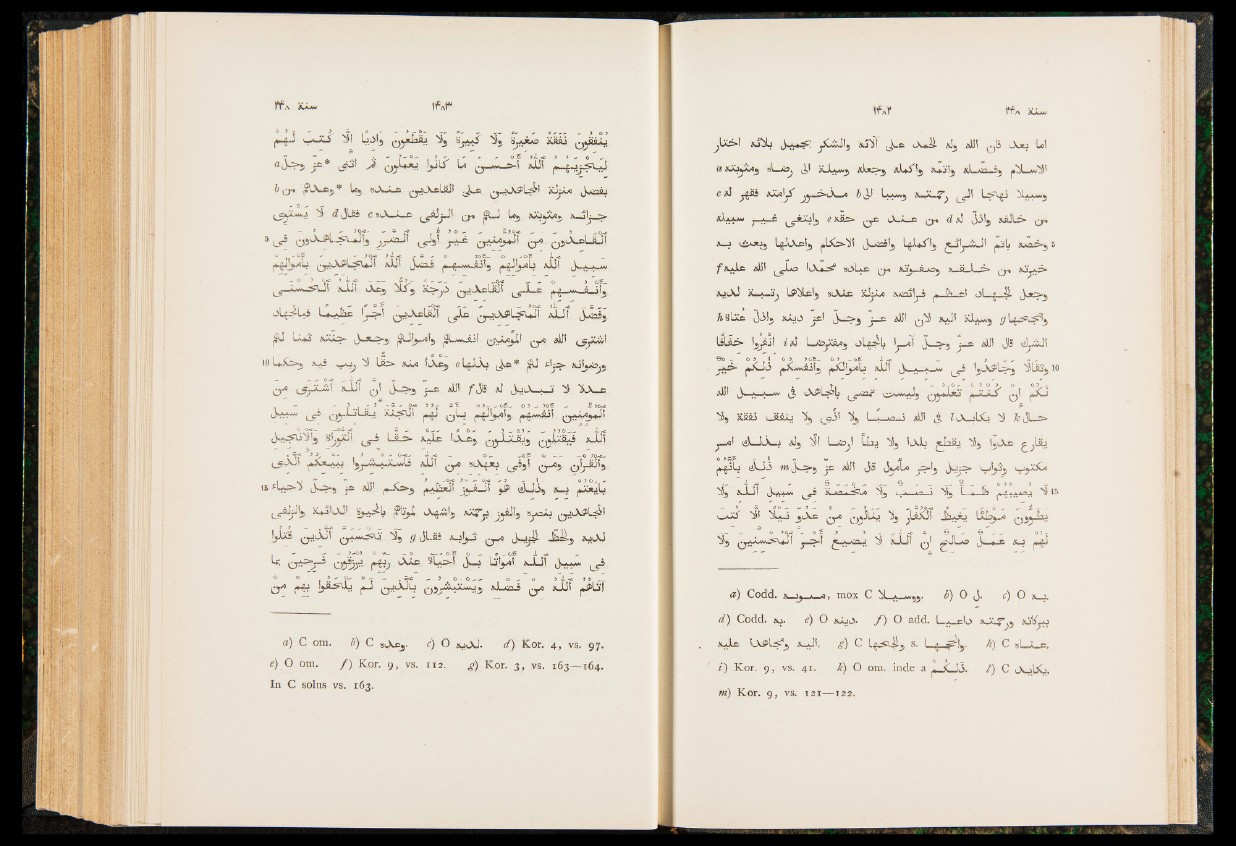 سنة ٢٤٨ ١٤٨٢
اما بعد فان الله وله الحمد على آلائه والشكر بجميل بلائه اختار
الاسلام وفضّله واتمّه واكمله وجعله وسيلة الى رضاه ومثوبته a
وسبيلا نهجا الى رحمته وسببا الى b مذخور كرامته فقهر له c
من خالفه واذلّ له d من عند عن حقّه e وابتغى غير سبيله
وخصّه باتمّ الشرائع واكملها وافضل الاحكام واعدلها وبعث به 5
خيرته من خلقه وصفوته من عباده محمّدا صلى الله عليه f
وجعل الجهاد اعظم فرائضه منزلة عنده واعلاها رتبة لديه
وانجحها g وسيلة اليه لانّ الله عزّ وجلّ اعزّ دينه واذلّ عتاة h
الشرك قال الله عزّ وجلّ آمرا بالجهاد ومفترضا له i انْفِرُوا خِفَافًا
وَثِقَالًا وَجَاهِدُوا فِي سَبِيلِ ٱللّٰهِ بِأَمْوَالِكُمْ وَأَنْفُسِكُمْ ذٰلِكُمْ خَيْرٌ 10
لَكُمْ إِنْ كُنْتُمْ تَعْلَمُونَ وليست تمضى بالمجاهد في سبيل الله
حال k لا يكابد l في الله نصبا ولا اذى ولا ينفق نفقة ولا
يقارع عدوّا ولا يقطع بلدا ولا يطأ ارضا الّا وله بذلك امر
مكتوب وثواب جزيل واجر مأمول قال الله عزّ وجلّ m ذٰلِكَ بِأَنَّهُمْ
لَا يُصِيبُهُمْ ظَمَأٌ وَلَا نَصَبٌ وَلَا مَخْمَصَةٌ فِي سَبِيلِ ٱللّٰهِ وَلَا 15
يَطَؤُونَ مَوْطِئًا يَغِيظُ ٱلْكُفَّارَ وَلَا يَنَالُونَ مِنْ عَدُوٍّ نَيْلًا إِلَّا كُتِبَ
لَهُمْ بِهِ عَمَلٌ صَالِحٌ إِنَّ ٱللّٰهَ لَا يُضِيعُ أَجْرَ ٱلْمُحْسِنِينَ وَلَا
a) Codd. mox C b) O ل. c) O به.
d) Codd. به. e) O دينه. f) O add.
عليه اليه. g) C s. h) C عناه.
i) Kor. 9, vs. 41. k) O om. inde a ذلكم. l) C يكايد.
m) Kor. 9, vs. 121—122.
سنة ٢٤٨ ١٤٨٣
يُنْفِقُونَ نَفَقَةً صَغِيرَةً وَلَا كَبِيرَةً وَلَا يَقْطَعُونَ وَادِيًا إِلَّا كُتِبَ لَهُمْ
لِيَجْزِيَهُمُ ٱللّٰهُ أَحْسَنَ مَا كَانُوا يَعْمَلُونَ ثم اثنى *عزّ وجلّ a
بفضل منزلة المجاهدين على القاعدين عنده وما *وعدهم من b
جزائه ومثوبته وما لهم من الزلفى عنده c فقال d لَا يَسْتَوِي
ٱلْقَاعِدُونَ مِنَ ٱلْمُؤْمِنِينَ غَيْرُ أُولِي ٱلضَّرَرِ وَٱلْمُجَاهِدُونَ فِي 5
سَبِيلِ ٱللّٰهِ بِأَمْوَالِهِمْ وَأَنْفُسِهِمْ فَضَّلَ ٱللّٰهُ ٱلْمُجَاهِدِينَ بِأَمْوَالِهِمْ
وَأَنْفُسِهِمْ عَلَى ٱلْقَاعِدِينَ دَرَجَةً وَكُلًّا وَعَدَ ٱللّٰهُ ٱلْحُسْنَى
وَفَضَّلَ ٱللّٰهُ ٱلْمُجَاهِدِينَ عَلَى ٱلْقَاعِدِينَ أَجْرًا عَظِيمًا فبالجهاد
اشترى الله من المؤمنين انفسهم واموالهم وجعل جنّته ثمنا لهم
ورضوانه جزاء لهم *على بذلها e وعدا منه حقّا لا ريب فيه وحكما 10
عدلا لا تبديل له قال f الله عزّ وجلّ إِنَّ ٱللّٰهَ ٱشْتَرَى مِنَ
ٱلْمُؤْمِنِينَ أَنْفُسَهُمْ وَأَمْوَالَهُمْ بِأَنَّ لَهُمُ ٱلْجَنَّةَ يُقَاتِلُونَ فِي سَبِيلِ
ٱللّٰهِ فَيَقْتُلُونَ وَيُقْتَلُونَ وَعْدًا عَلَيْهِ حَقًّا فِي ٱلتَّوْرَاةِ وَٱلْإِنْجِيلِ
وَٱلْقُرْآنِ وَمَنْ أَوْفَى بِعَهْدِهِ مِنَ ٱللّٰهِ فَٱسْتَبْشِرُوا بِبَيْعِكُمُ ٱلَّذِي
بَايَعْتُمْ بِهِ وَذٰلِكَ هُوَ ٱلْفَوْزُ ٱلْعَظِيمُ وحكم الله عزّ وجلّ لاحياء 15
المجاهدين بنصره والفوز برحمته واشهد لموتاهم بالحيوة الدائمة والزلفى
لديه والحظّ الجزيل من ثوابه فقال g وَلَا تَحْسَبَنَّ ٱلَّذِينَ قُتِلُوا
فِي سَبِيلِ ٱللّٰهِ أَمْوَاتًا بَلْ أَحْيَاءٌ عِنْدَ رَبِّهِمْ يُرْزَقُونَ فَرِحِينَ بِمَا
آتَاهُمُ ٱللّٰهُ مِنْ فَضْلِهِ وَيَسْتَبْشِرُونَ بِٱلَّذِينَ لَمْ يَلْحَقُوا بِهِمْ مِنْ
a) C om. b) C وعده. c) O لديه. d) Kor. 4, vs. 97.
e) O om. f) Kor. 9, vs. 112. g) Kor. 3, vs. 163—164.
In C solus vs. 163.